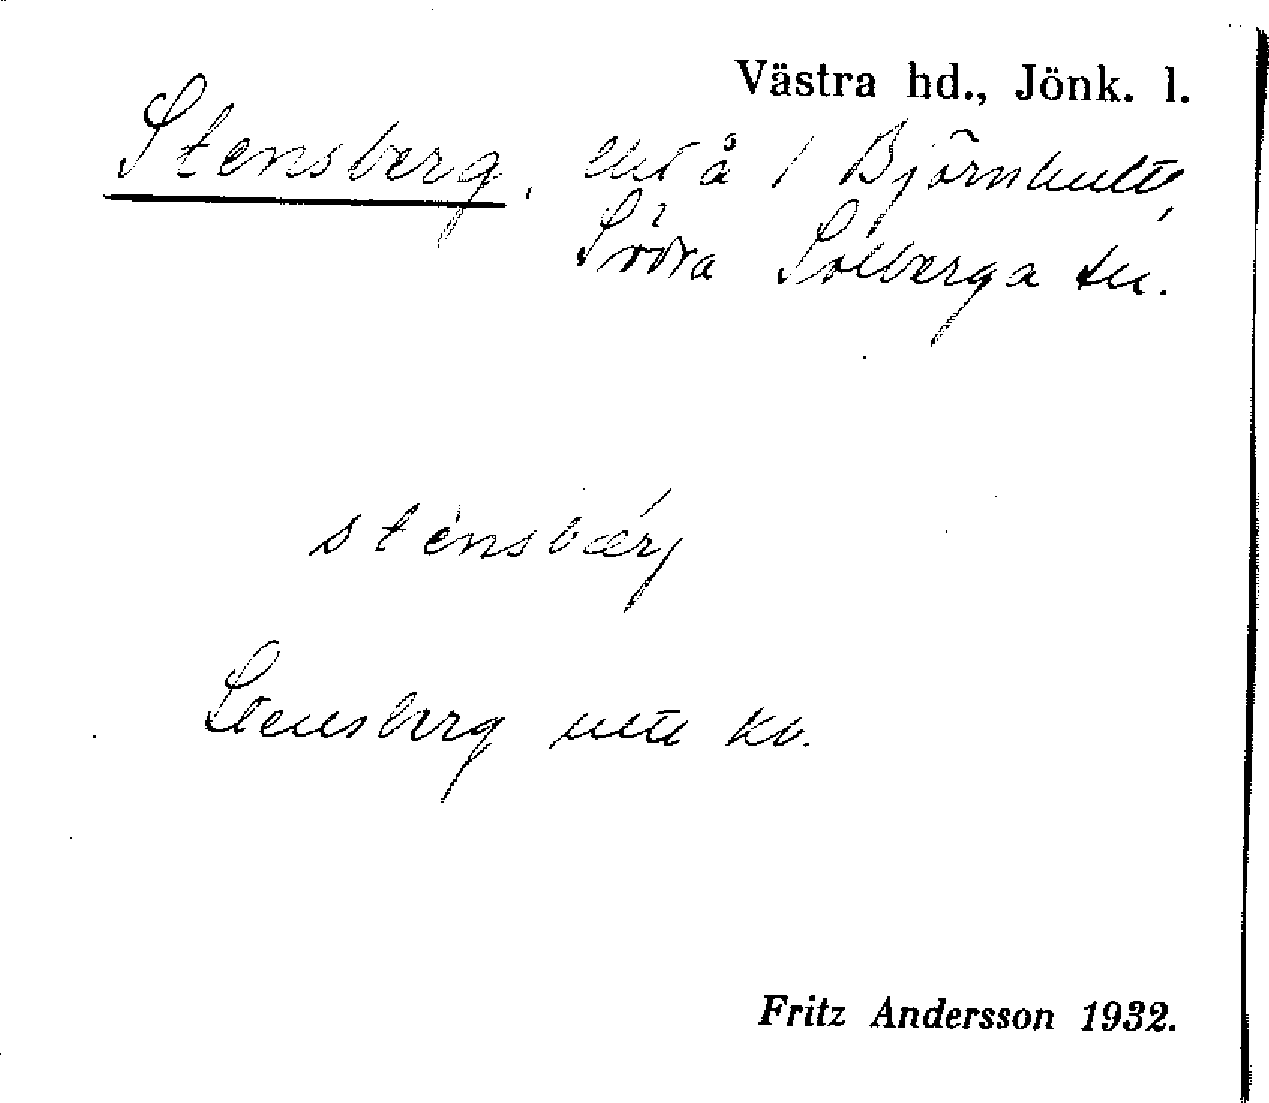 Västra hd., Jönk. l.
Stensberg, å 1 Björnhult,
Södra Solberga sn.
sténsbærj
Stensberg kv.
Fritz Andersson 1932.